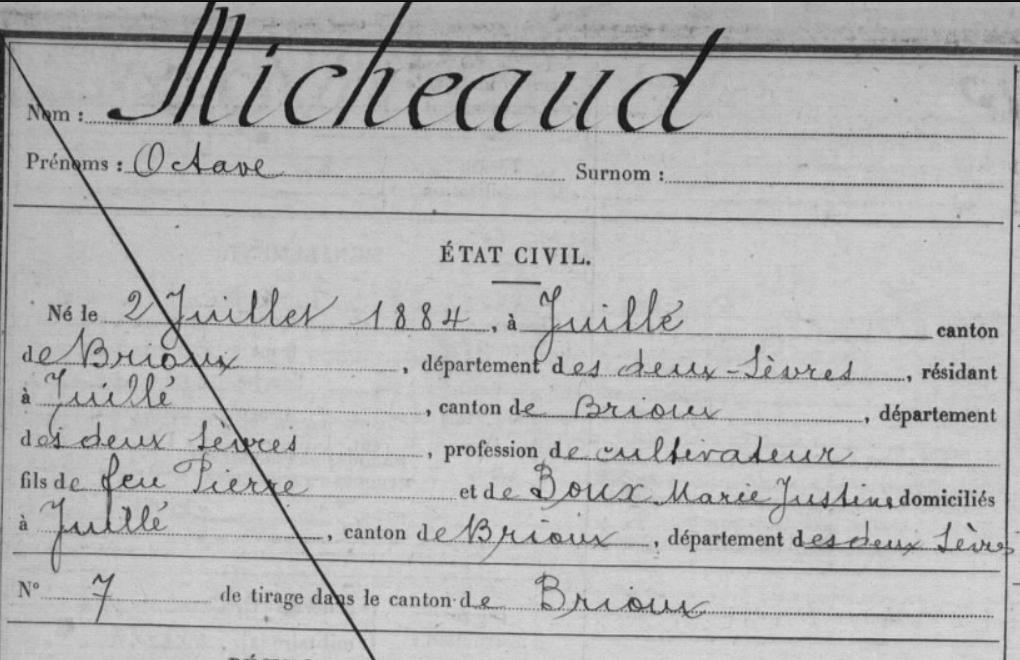 Nom : Micheaud
Prénoms : Octave Surnom :
ÉTAT CIVIL.
Né le 2 Juillet 1884, à Juillé canton
de Brioux, département des deux-Sèvres, résidant
à Juillé, canton de Brioux, département
des deux Sèvres, profession de cultivateur
fils de feu Pierre et de Doux Marie Justine domiciliés
à Juillé, canton de Brioux, département des deux Sèvres
N° 7 de tirage dans le canton de Brioux